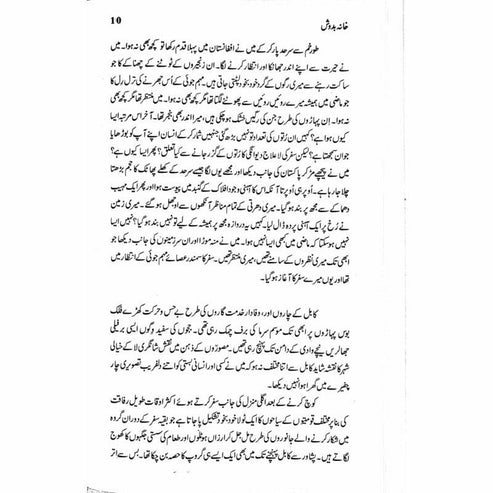 خانہ بدوش 10
طورخم سے سرحد پار کر کے میں نے افغانستان میں پہلا قدم رکھا تو کچھ بھی نہ ہوا۔ میں
نے حیرت سے اپنے اندر جھانکا اور انتظار کرنے لگا۔ ان زنجیروں کے ٹوٹنے کے چھناکے کا جو
ساکت رہنے سے میری رگوں کے گرد خود بخود لپٹتی جاتی ہیں۔ مہم جوئی کے اُس جھرنے کی ترل رل کا
جو ماضی میں ہمیشہ میرے روئیں روئیں سے پھوٹنے لگتا تھا مگر کچھ بھی نہ ہوا۔ میں منتظر تھا مگر کچھ بھی
نہ ہوا۔ ان پہاڑوں کی طرح جن کی رگیں خشک ہو چکی ہیں، میرا اندر بھی بنجر تھا۔ آخر اس مرتبہ ایسا
کیوں ہوا ہے؟ کہیں ان رُتوں کی تعداد تو نہیں بڑھ گئی جنہیں شمار کر کے انسان اپنے آپ کو بوڑھا یا
جوان سمجھتا ہے؟ لیکن سفر کی لاعلاج دیوانگی کا رُتوں کے گزر جانے سے کیا تعلق؟ پھر ایسا کیوں ہے؟
میں نے پیچھے مڑ کر پاکستان کی جانب دیکھا اور مجھے یوں لگا جیسے سرحد کے پھاٹک کا حجم بڑھتا
چلا جا رہا ہے۔ اُوپر ہی اُوپر تا آنکہ اس کا آہنی وجود افلاک کے گنبد میں پیوست ہوا اور پھر ایک مہیب
دھماکے سے مجھ پر بند ہو گیا۔ میری دھرتی کے تمام مناظر آنکھوں سے اوجھل ہو گئے۔ میری زمین
نے رُخ پر ایک آہنی پردہ ڈال لیا۔ کہیں یہ دروازہ مجھ پر ہمیشہ کے لیے تو نہیں بند ہو گیا؟ نہیں ایسا
نہیں ہو سکتا کہ ماضی میں کبھی ایسا نہیں ہوا۔ میں نے منہ موڑا اور ان سرزمینوں کی جانب دیکھا جو
ابھی تک میری نظروں کے سامنے تھیں، میری منتظر تھیں۔ سفر کا سمندر عصائے مہم جوئی کے انتظار میں
تھا اور یوں میرے سفر کا آغاز ہو گیا۔
کابل کے چاروں اور، وفادار خدمت گاروں کی طرح بے حس و حرکت کھڑے فلک
بوس پہاڑوں پر ابھی تک موسم سرما کی برف چمک رہی تھی۔ ججوں کی سفید وگوں ایسی برفیلی
جھالریں نیچے وادی کے دامن تک پہنچ رہی تھیں۔ مصوروں کے ذہن میں نقش شانگری لا کے خیالی
شہر کا نقشہ شاید کابل سے اتنا مختلف نہ ہو کہ میں نے کسی اور انسانی بستی کو اتنے دلفریب تصویری چار
چفیرے میں گھرا ہوا نہیں دیکھا۔
کوچ کرنے کے بعد اگلی منزل کی جانب سفر کرتے ہوئے اکثر اوقات طویل رفاقت
کی بنا پر مختلف قومیتوں کے سیاحوں کا ایک ٹولا خود بخود تشکیل پا جاتا ہے جو بقیہ سفر کے دوران گروہ
میں شکار کرنے والے جانوروں کی طرح مل جل کر ارزاں ہوٹلوں اور طعام کی سستی جگہوں کا کھوج
لگاتے ہیں۔ پشاور سے کابل پہنچتے تک میں بھی ایک ایسے ہی گروپ کا حصہ بن چکا تھا۔ بس سے اتر